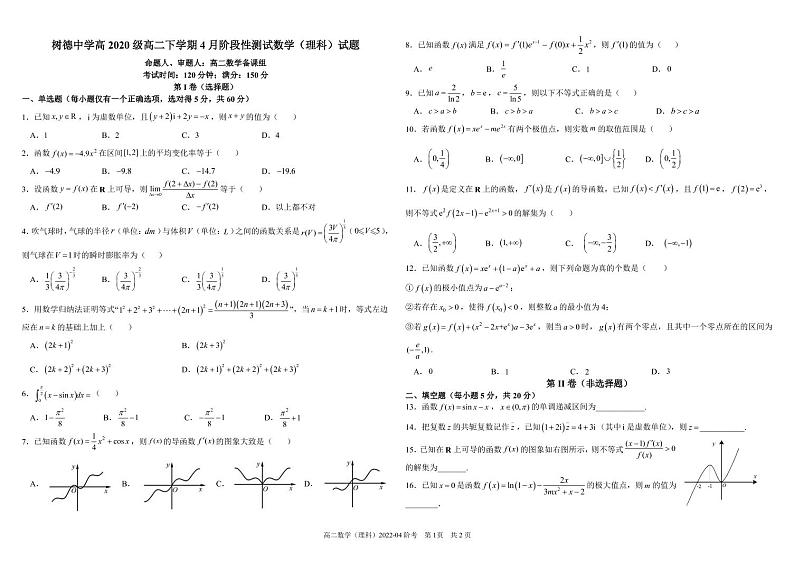 树德中学高 2020 级高二下学期 4 月阶段性测试数学（理科）试题
命题人、审题人：高二数学备课组
考试时间：120 分钟；满分：150 分
第 I 卷（选择题）
一、单选题（每小题仅有一个正确选项，选对得 5 分，共 60 分）
1．已知 x, y ∈ R ，i 为虚数单位，且 (y+2)i+2y=-x ，则 x+y 的值为（ ）
A．1 B．2 C．3 D．4
2．函数 f(x)=-4.9x² 在区间 [1,2] 上的平均变化率等于（ ）
A．-4.9 B．-9.8 C．-14.7 D．-19.6
3．设函数 y=f(x) 在 R 上可导，则 lim(Δx→0) [f(2+Δx)-f(2)]/Δx 等于（ ）
A．f'(2) B．f'(-2) C．-f'(2) D．以上都不对
4．吹气球时，气球的半径 r（单位：dm）与体积 V（单位：L）之间的函数关系是 r(V)=(3V/4π)^(1/3)（0≤V≤5），
则气球在 V=1 时的瞬时膨胀率为（ ）
A．1/3(3/4π)^(-2/3) B．(3/4π)^(-2/3) C．1/3(3/4π)^(1/3) D．(3/4π)^(1/3)
5．用数学归纳法证明等式“1²+2²+3²+⋯+(2n+1)²=(n+1)(2n+1)(2n+3)/3”，当 n=k+1 时，等式左边
应在 n=k 的基础上加上（ ）
A．(2k+1)² B．(2k+3)²
C．(2k+2)²+(2k+3)² D．(2k+1)²+(2k+2)²+(2k+3)²
6．∫₀^(π/2)(x-sin x)dx=（ ）
A．1-π²/8 B．π²/8-1 C．-π²/8-1 D．π²/8+1
7．已知函数 f(x)=1/4 x²+cos x ，则 f(x) 的导函数 f'(x) 的图象大致是（ ）
A． y O x B． y O x C． y O x D． y O x
8．已知函数 f(x) 满足 f(x)=f'(1)e^(x-1)-f(0)x+1/2 x² ，则 f'(1) 的值为（ ）
A．e B．1/e C．1 D．0
9．已知 a=2/ln2 ，b=e ，c=5/ln5 ，则以下不等式正确的是（ ）
A．c>a>b B．c>b>a C．b>a>c D．b>c>a
10．若函数 f(x)=xe^x-me^(2x) 有两个极值点，则实数 m 的取值范围是（ ）
A．(0,1/4) B．(-∞,0] C．(-∞,0]∪{1/2} D．(0,1/2)
11．f(x) 是定义在 R 上的函数，f'(x) 是 f(x) 的导函数，已知 f(x)<f'(x) ，且 f(1)=e ，f(2)=e³ ，
则不等式 e²f(2x-1)-e^(2x+1)>0 的解集为（ ）
A．(3/2,+∞) B．(1,+∞) C．(-∞,3/2) D．(-∞,-1)
12．已知函数 f(x)=xe^x+(1-a)e^x+a ，则下列命题为真的个数是（ ）
①f(x) 的极小值点为 a-e^(a-2)；
②若存在 x₀>0 ，使得 f(x₀)<0 ，则整数 a 的最小值为 4；
③若 g(x)=f(x)+(x²-2x+e^x)a-3e^x ，则当 a>0 时，g(x) 有两个零点，且其中一个零点所在的区间为
(-e/a,1)．
A．0 B．1 C．2 D．3
第 II 卷（非选择题）
二、填空题（每小题 5 分，共 20 分）
13．函数 f(x)=sin x-x ，x∈(0,π) 的单调递减区间为____________．
14．把复数 z 的共轭复数记作 z̄ ，已知 (1+2i)z̄=4+3i（其中 i 是虚数单位），则 z=____________．
15．已知在 R 上可导的函数 f(x) 的图象如右图所示，则不等式 (x-1)f'(x)/f(x)>0
的解集为_______．
y x -2 -1 O
16．已知 x=0 是函数 f(x)=ln(1-x)-2x/(3mx²+x-2) 的极大值点，则 m 的值为
________．
高二数学（理科）2022-04 阶考 第 1 页 共 2 页